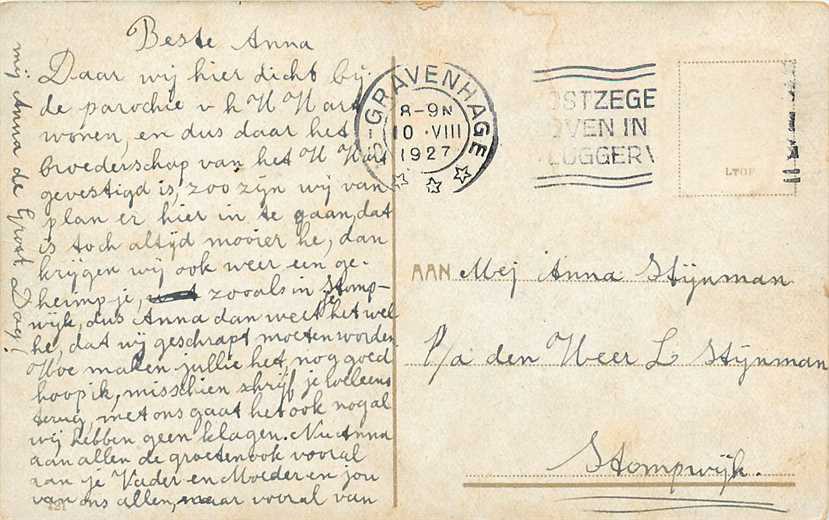 Beste Anna
Daar wij hier dicht bij
de parochie v h H Hart
wonen, en dus daar het
broederschap van het H Hart
gevestigd is, zoo zijn wij van
plan er hier in te gaan, dat
is toch altijd mooier he, dan
krijgen wij ook weer een ge-
heimp-je, zooals in Stomp-
wijk, dus Anna dan weet je het wel
he, dat wij geschrapt moeten worden
Hoe maken jullie het, nog goed
hoop ik, misschien schrijf je wel eens
terug, met ons gaat het ook nogal
wij hebben geen klagen. Nu Anna
aan allen de groeten ook vooral
aan je Vader en Moeder en jou
van ons allen, maar vooral van
mij Anna de Groot Dag!
'S-GRAVENHAGE
8-9N
10 .VIII
1927
OSTZEGE
OVEN IN
LTOF
AAN Mej Anna Stijnman
P/a den Heer L Stijnman
Stompwijk.
421